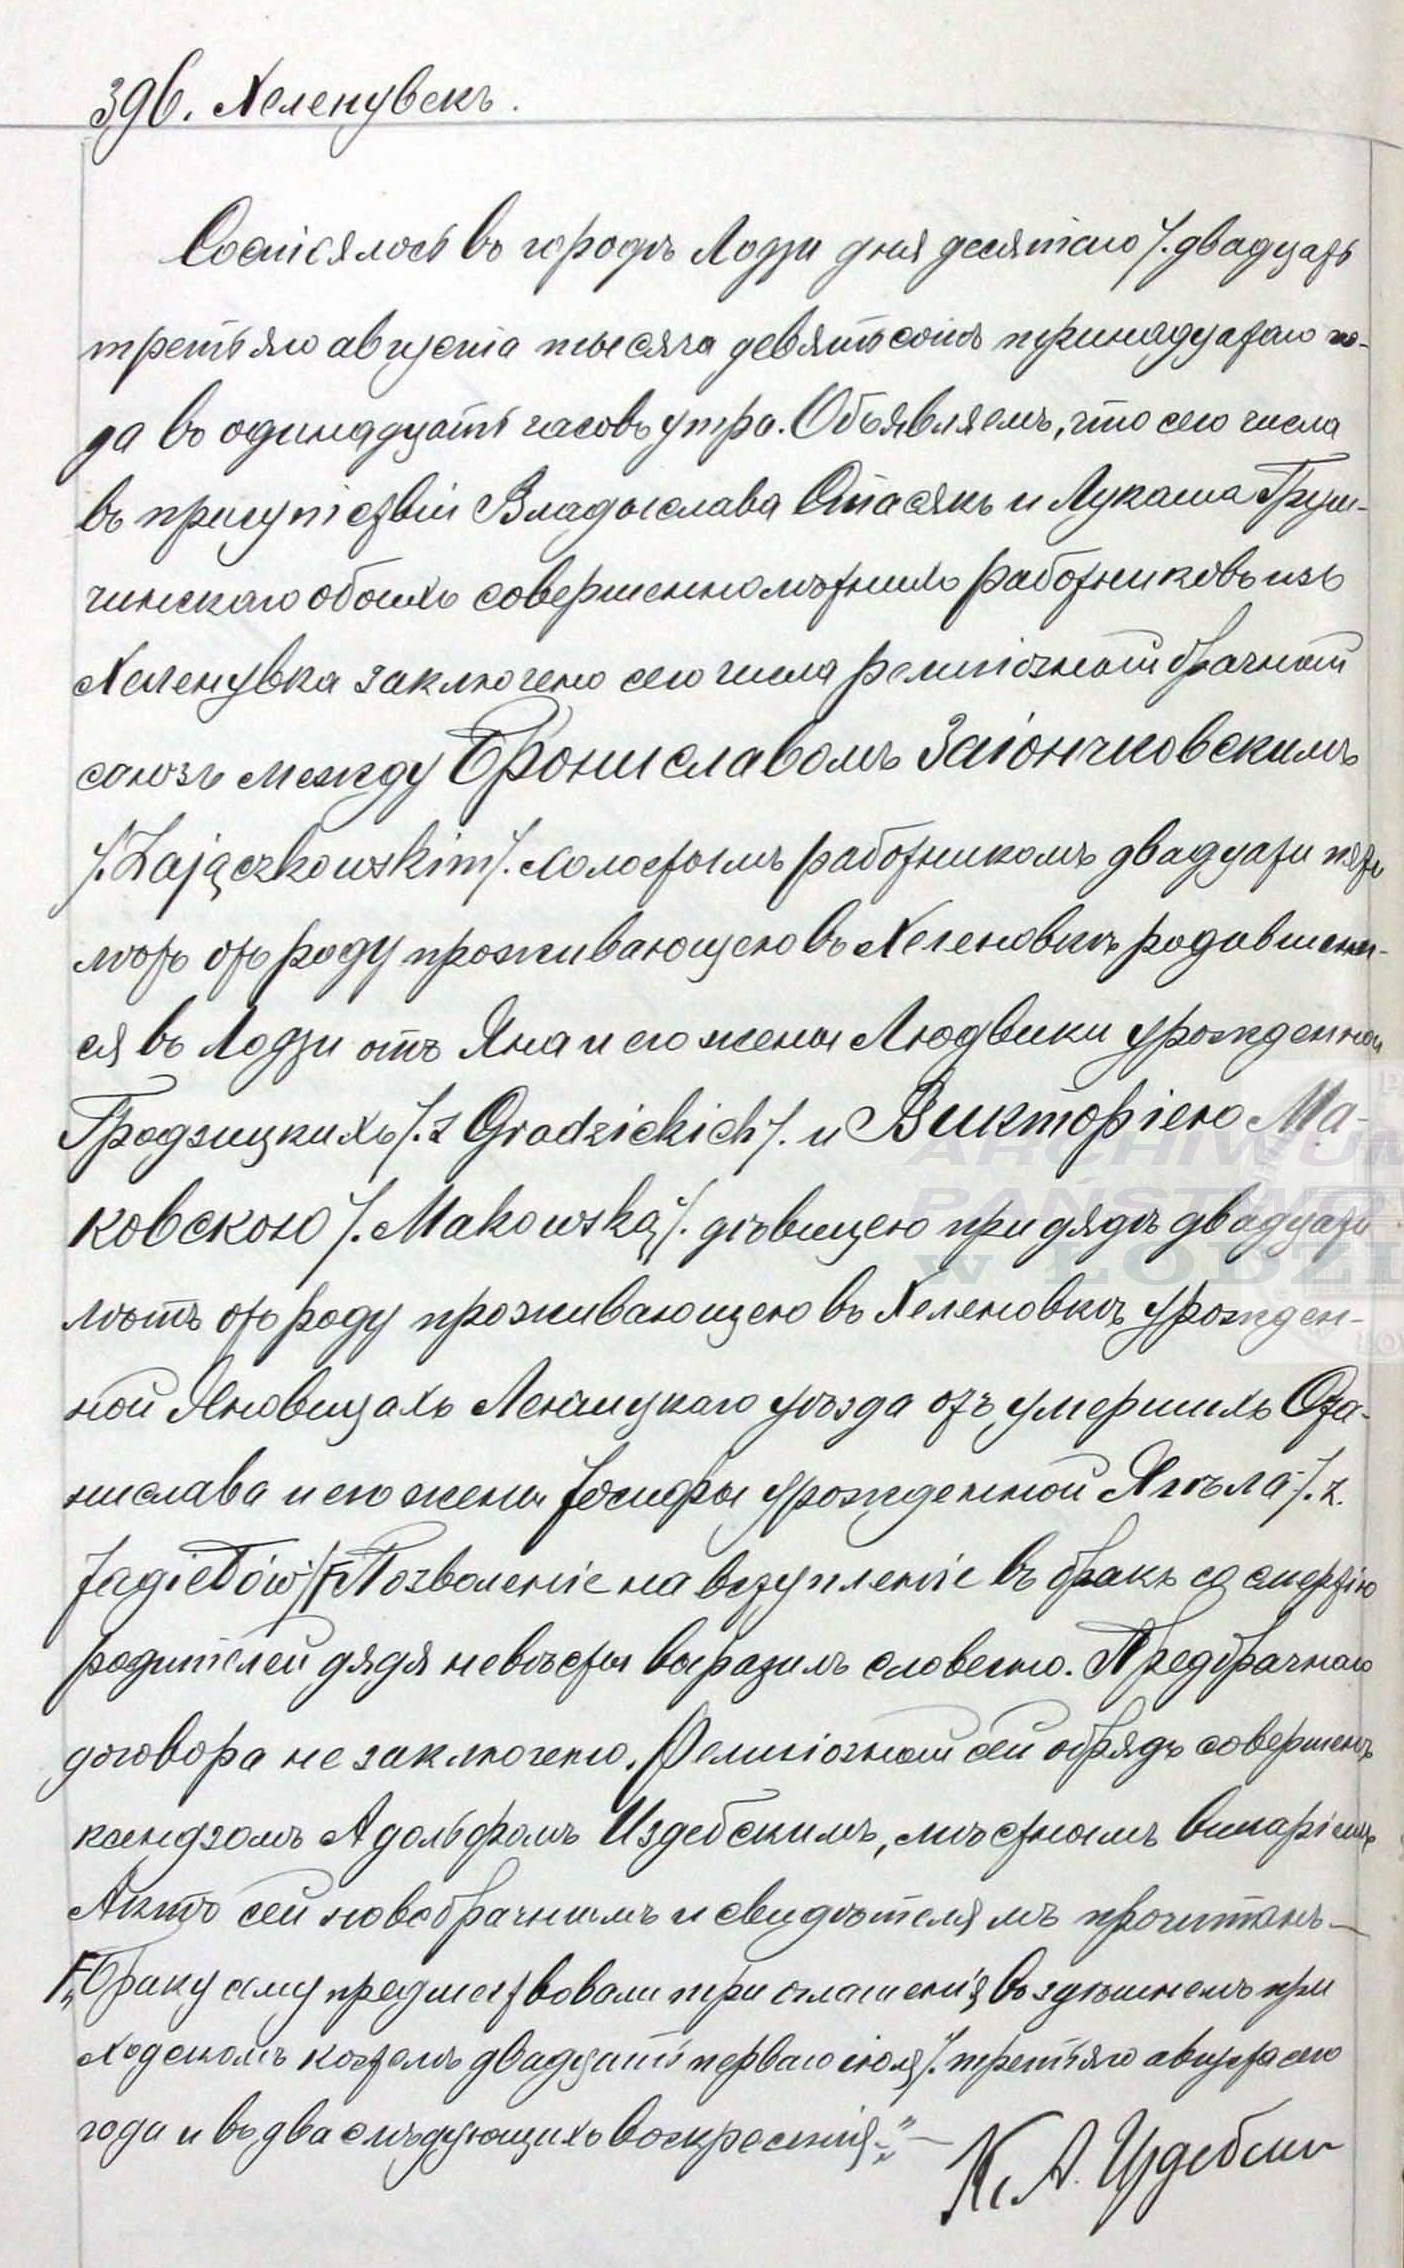 396. Хеленувекъ.
Состіялось въ городѣ Лодзи дня десятаго /. двадцать
третьяго августа тысяча девятьсотъ тринадцатаго го-
да въ одинадцать часовъ утра. Объявляемъ, что сего числа
въ присутствіи Владыслава Стасякъ и Лукаша Грущ-
чинскаго обоихъ совершеннолѣтнихъ работниковъ изъ
Хеленувка заключено сего числа религіозный брачный
союзъ между Брониславомъ Заіончковскимъ
/. Zajączkowskim /. холостымъ работникомъ двадцати пять
лѣтъ отъ роду проживающего въ Хеленовкѣ родившемъ-
ся въ Лодзи отъ Яна и его жены Людвики урожденной
Градзицкихъ /. z Gradzickich /. и Викторіею Ма-
ковскою /. Makowską /. дѣвицею при дядѣ двадцати
лѣтъ отъ роду проживающею въ Хеленовкѣ урожден-
ной Яновицахъ Ленчицкаго уѣзда отъ умершихъ Ста-
нислава и его жены Іосифы урожденной Ягѣла /. z.
Jagiełłów /. F Позволеніе на вступленіе въ бракъ со смертію
родителей дядя невѣсты выразилъ словесно. Предбрачнаго
договора не заключено. Религіозный сей обрядъ совершенъ
ксендзомъ Адольфомъ Издебскимъ, мѣстнымъ викаріемъ
Актъ сей новобрачнымъ и свидѣтелямъ прочитанъ —
F „Браку сему предшествовали три оглашенія въ здѣшнемъ при
ходскомъ костелѣ двадцать перваго іюля /. третьяго августа сего
года и въ два слѣдующихъ воскресенія" —
К. А. Издебски
ARCHIWUM
PAŃSTWO
w ŁODZI